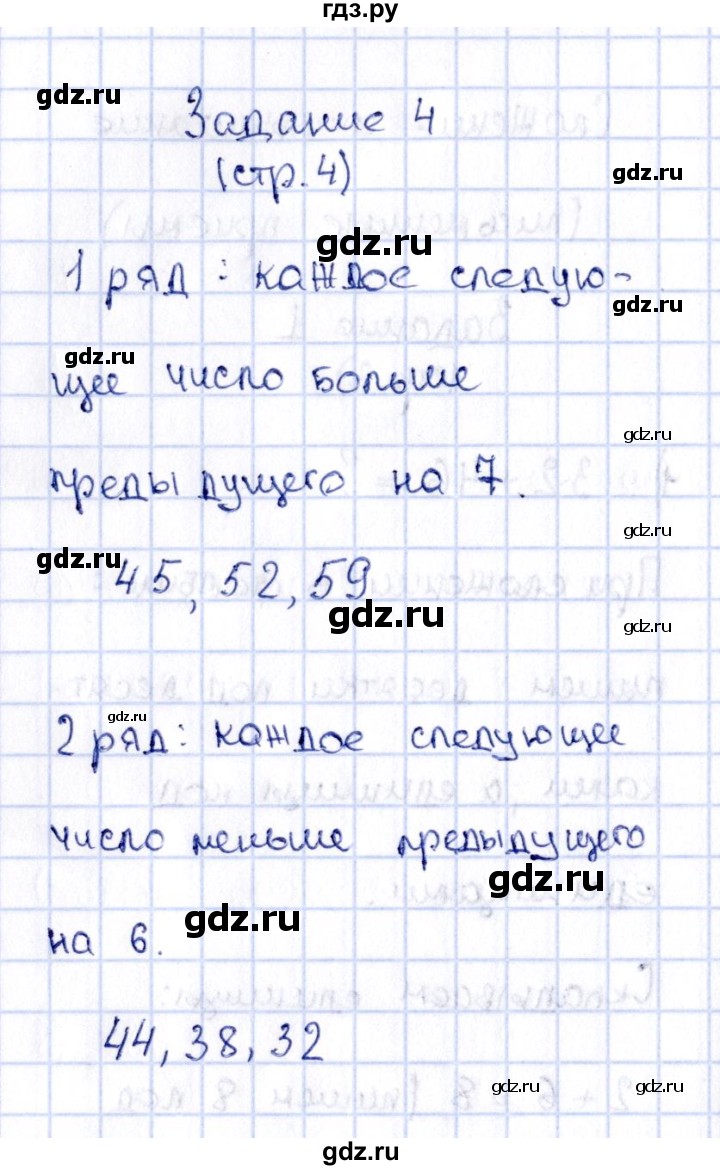 гдз.ру
gdz.ru
Задание 4
(стр. 4)
gdz.ru
gdz.ru
1 ряд : каждое следую-
gdz.ru
щее число больше
gdz.ru
предыдущего на 7.
gdz.ru
gdz.ru
45, 52, 59
gdz.ru
gdz.ru
gdz.ru
2 ряд: каждое следующее
число меньше предыдущего
gdz.ru
gdz.ru
на 6.
44, 38, 32
gdz.ru
gdz.ru
gdz.ru